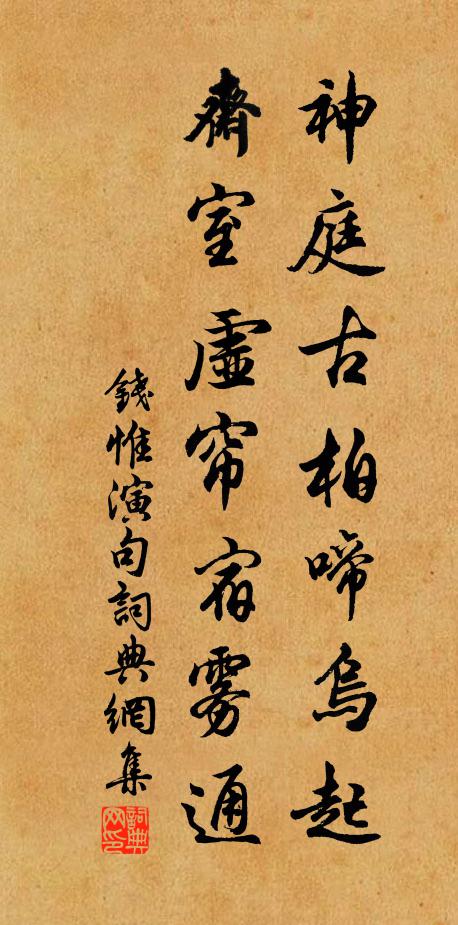 神庭古柏啼烏起
齋室虛帘宿雾通
錢惟演句詞典網集
詞典网印